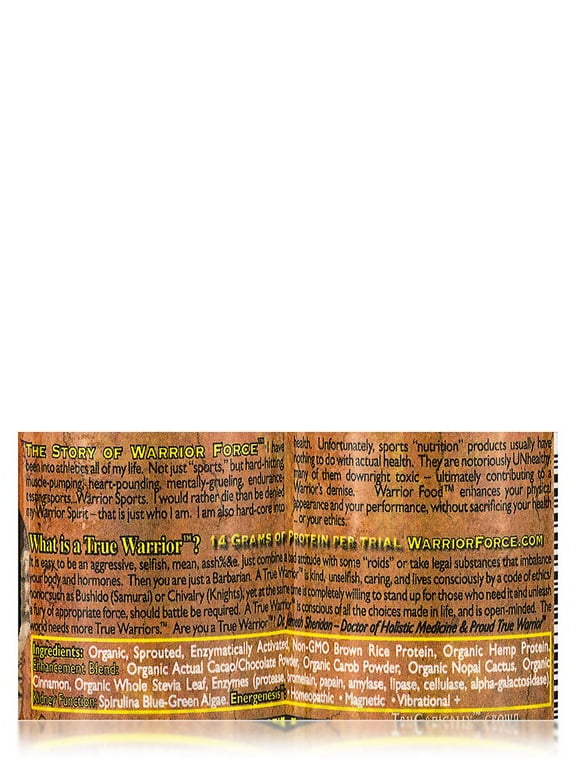 The Story of Warrior Force™ I have
been into athletics all of my life. Not just "sports," but hard-hitting,
muscle-pumping, heart-pounding, mentally-grueling, endurance
testing sports...Warrior Sports. I would rather die than be denied
my Warrior Spirit – that is just who I am. I am also hard-core into
health. Unfortunately, sports "nutrition" products usually have
nothing to do with actual health. They are notoriously UNhealthy,
many of them downright toxic – ultimately contributing to a
Warrior's demise. Warrior Food™ enhances your physical
appearance and your performance, without sacrificing your health
... or your ethics.
What is a True Warrior™? 14 Grams of Protein per Trial WarriorForce.com
It is easy to be an aggressive, selfish, mean, assh%&e. Just combine a bad attitude with some "roids" or take legal substances that imbalance
your body and hormones. Then you are just a Barbarian. A True Warrior™ is kind, unselfish, caring, and lives consciously by a code of ethics/
honor such as Bushido (Samurai) or Chivalry (Knights), yet at the same time is completely willing to stand up for those who need it and unleash
a fury of appropriate force, should battle be required. A True Warrior™ is conscious of all the choices made in life, and is open-minded. The
world needs more True Warriors.™ Are you a True Warrior™? Sheridon – Doctor of Holistic Medicine & Proud True Warrior™
Ingredients: Organic, Sprouted, Enzymatically Activated, Non-GMO Brown Rice Protein, Organic Hemp Protein,
Enhancement Blend: Organic Actual Cacao/Chocolate Powder, Organic Carob Powder, Organic Nopal Cactus, Organic
Cinnamon, Organic Whole Stevia Leaf, Enzymes (protease, bromelain, papain, amylase, lipase, cellulase, alpha-galactosidase).
Kidney Function: Spirulina Blue-Green Algae. Energenesis™: Homeopathic • Magnetic • Vibrational +